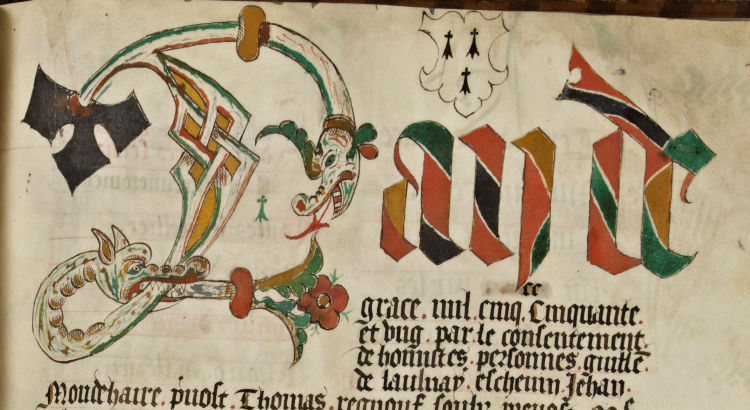 Land
grace . mil . cinq . Cinquante .
et vng . par . le consentement .
de honnstes . personnes . guillē
de launay . escheuin . Jehan .
Moudehaire . puost . Thomas . regnouf